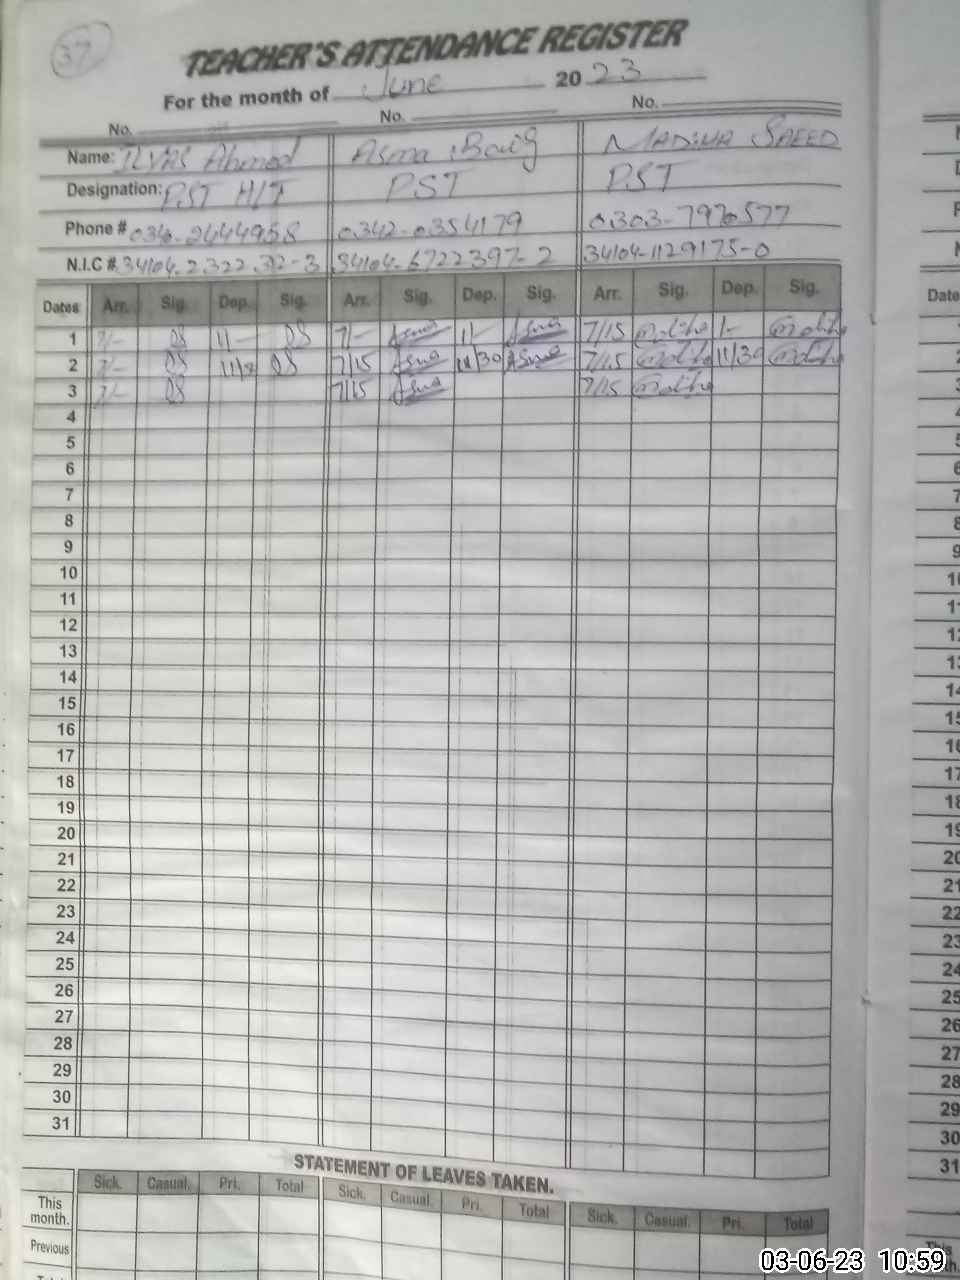 37
TEACHER'S ATTENDANCE REGISTER
For the month of June 2023
No. No. No.
Name: ILYAS Ahmed Asma Baig MADIHA SAEED
Designation: PST H/T PST PST
Phone # 0342-0354179 0303-7970577
N.I.C # 34104-6722397-2 34104-1129175-0
Dates Arr. Sig. Dep. Sig. Arr. Sig. Dep. Sig. Arr. Sig. Dep. Sig.
1 7/- 11- 7/- Asma 11- Asma 7/15 Madiha 1- Madiha
2 7/- 7/15 Asma 11/30 Asma 7/15 Madiha 11/30 Madiha
3 7/- 7/15 Asma 7/15 Madiha
4
5
6
7
8
9
10
11
12
13
14
15
16
17
18
19
20
21
22
23
24
25
26
27
28
29
30
31
STATEMENT OF LEAVES TAKEN.
Sick. Casual. Pri. Total Sick. Casual. Pri. Total Sick. Casual. Pri. Total
This
month.
Previous
03-06-23 10:59